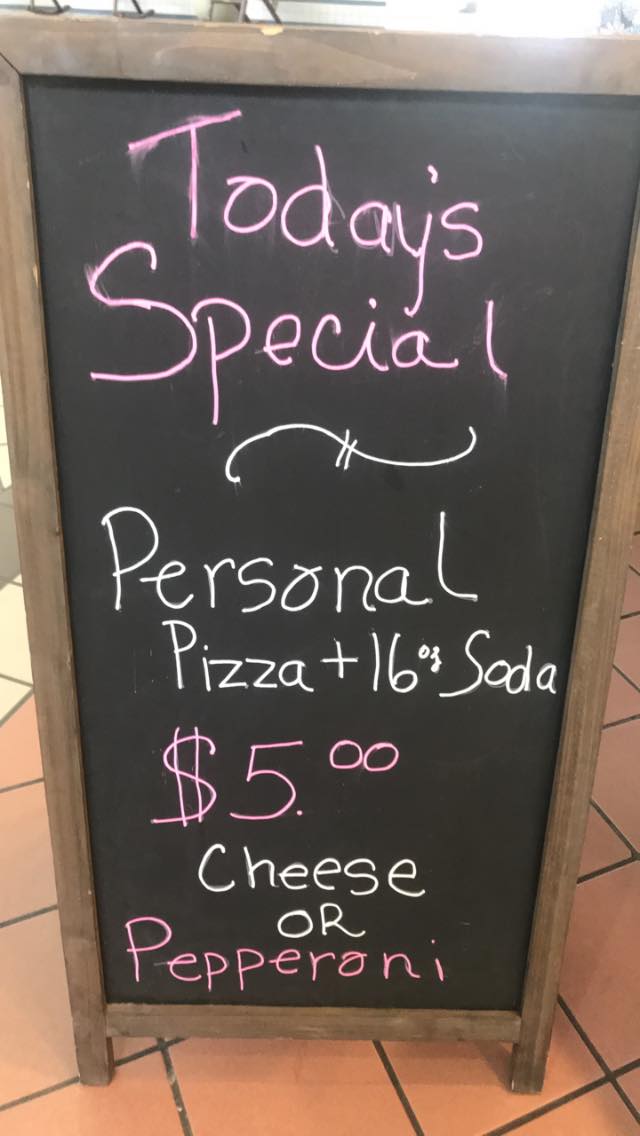 Today's
Special
Personal
Pizza + 16 oz Soda
$5.00
Cheese
OR
Pepperoni